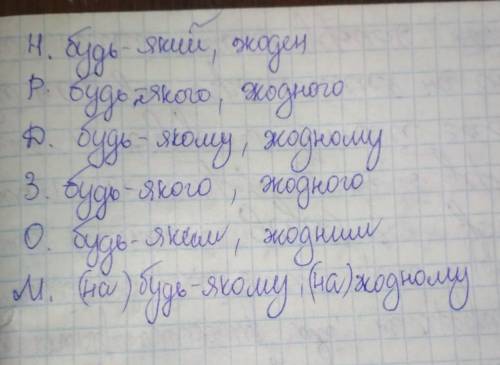 Н. будь-який, жоден
Р. будь-якого, жодного
Д. будь-якому, жодному
З. будь-якого, жодного
О. будь-яким, жодним
М. (на) будь-якому, (на) жодному